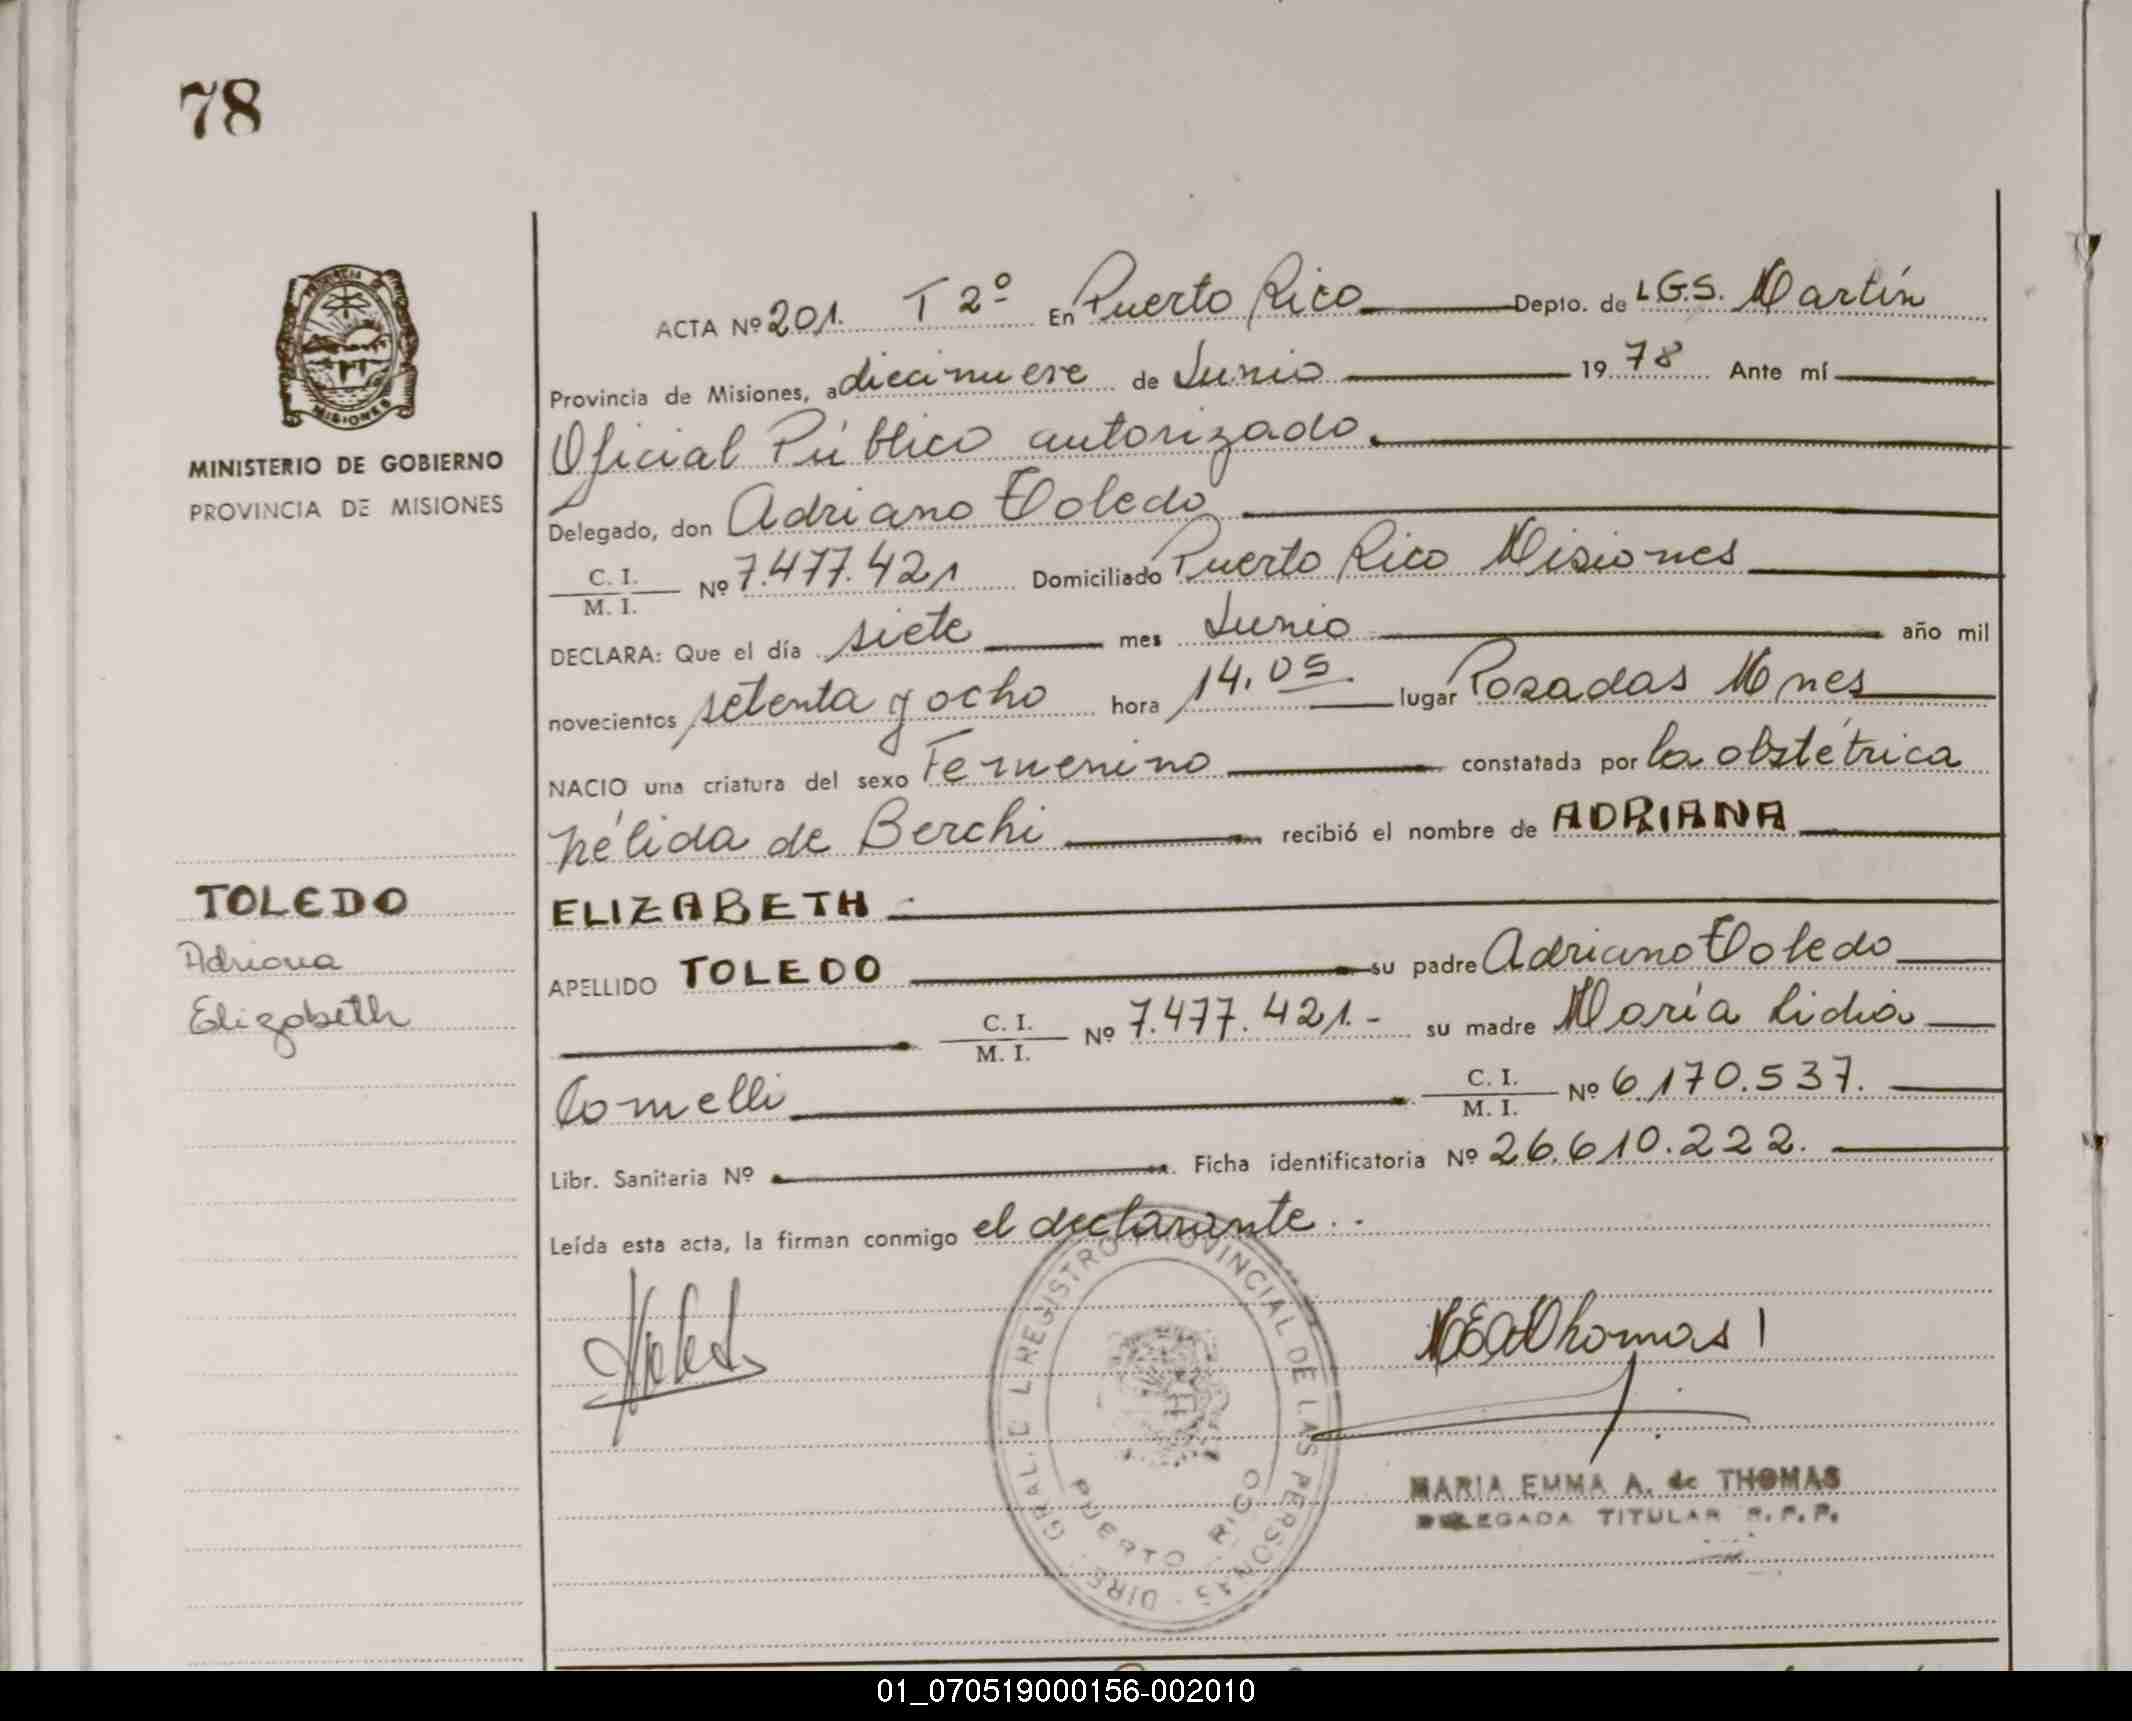 78
PROVINCIA
MISIONES
MINISTERIO DE GOBIERNO
PROVINCIA DE MISIONES
TOLEDO
Adriana
Elizabeth
ACTA Nº 201. T 2º En Puerto Rico Depto. de L.G.S. Martín
Provincia de Misiones, a diecinueve de Junio 19 78 Ante mí
Oficial Público autorizado.
Delegado, don Adriano Toledo
C. I. / M. I. Nº 7.477.421 Domiciliado Puerto Rico Misiones
DECLARA: Que el día siete mes Junio año mil
novecientos setenta y ocho hora 14.05. lugar Posadas Mnes
NACIO una criatura del sexo Femenino constatada por la obstétrica
Nélida de Berchi recibió el nombre de ADRIANA
ELIZABETH
APELLIDO TOLEDO su padre Adriano Toledo
C. I. / M. I. Nº 7.477.421.- su madre María Lidia
Comelli C. I. / M. I. Nº 6.170.537.
Libr. Sanitaria Nº Ficha identificatoria Nº 26.610.222.
Leída esta acta, la firman conmigo el declarante..
Toledo
MEAThomas
DIRE. GRAL. DEL REGISTRO PROVINCIAL DE LAS PERSONAS
PUERTO RICO
MARIA EMMA A. de THOMAS
DELEGADA TITULAR R.P.P.
01_070519000156-002010